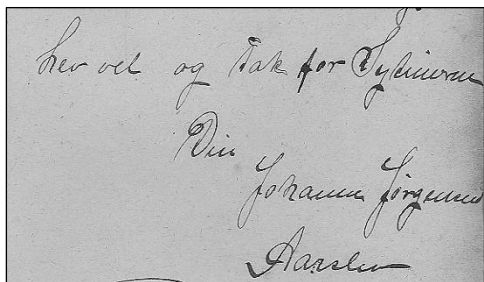 Lev vel og Tak for Sytimerne
Din
Johanne Jørgensen
Aarslev